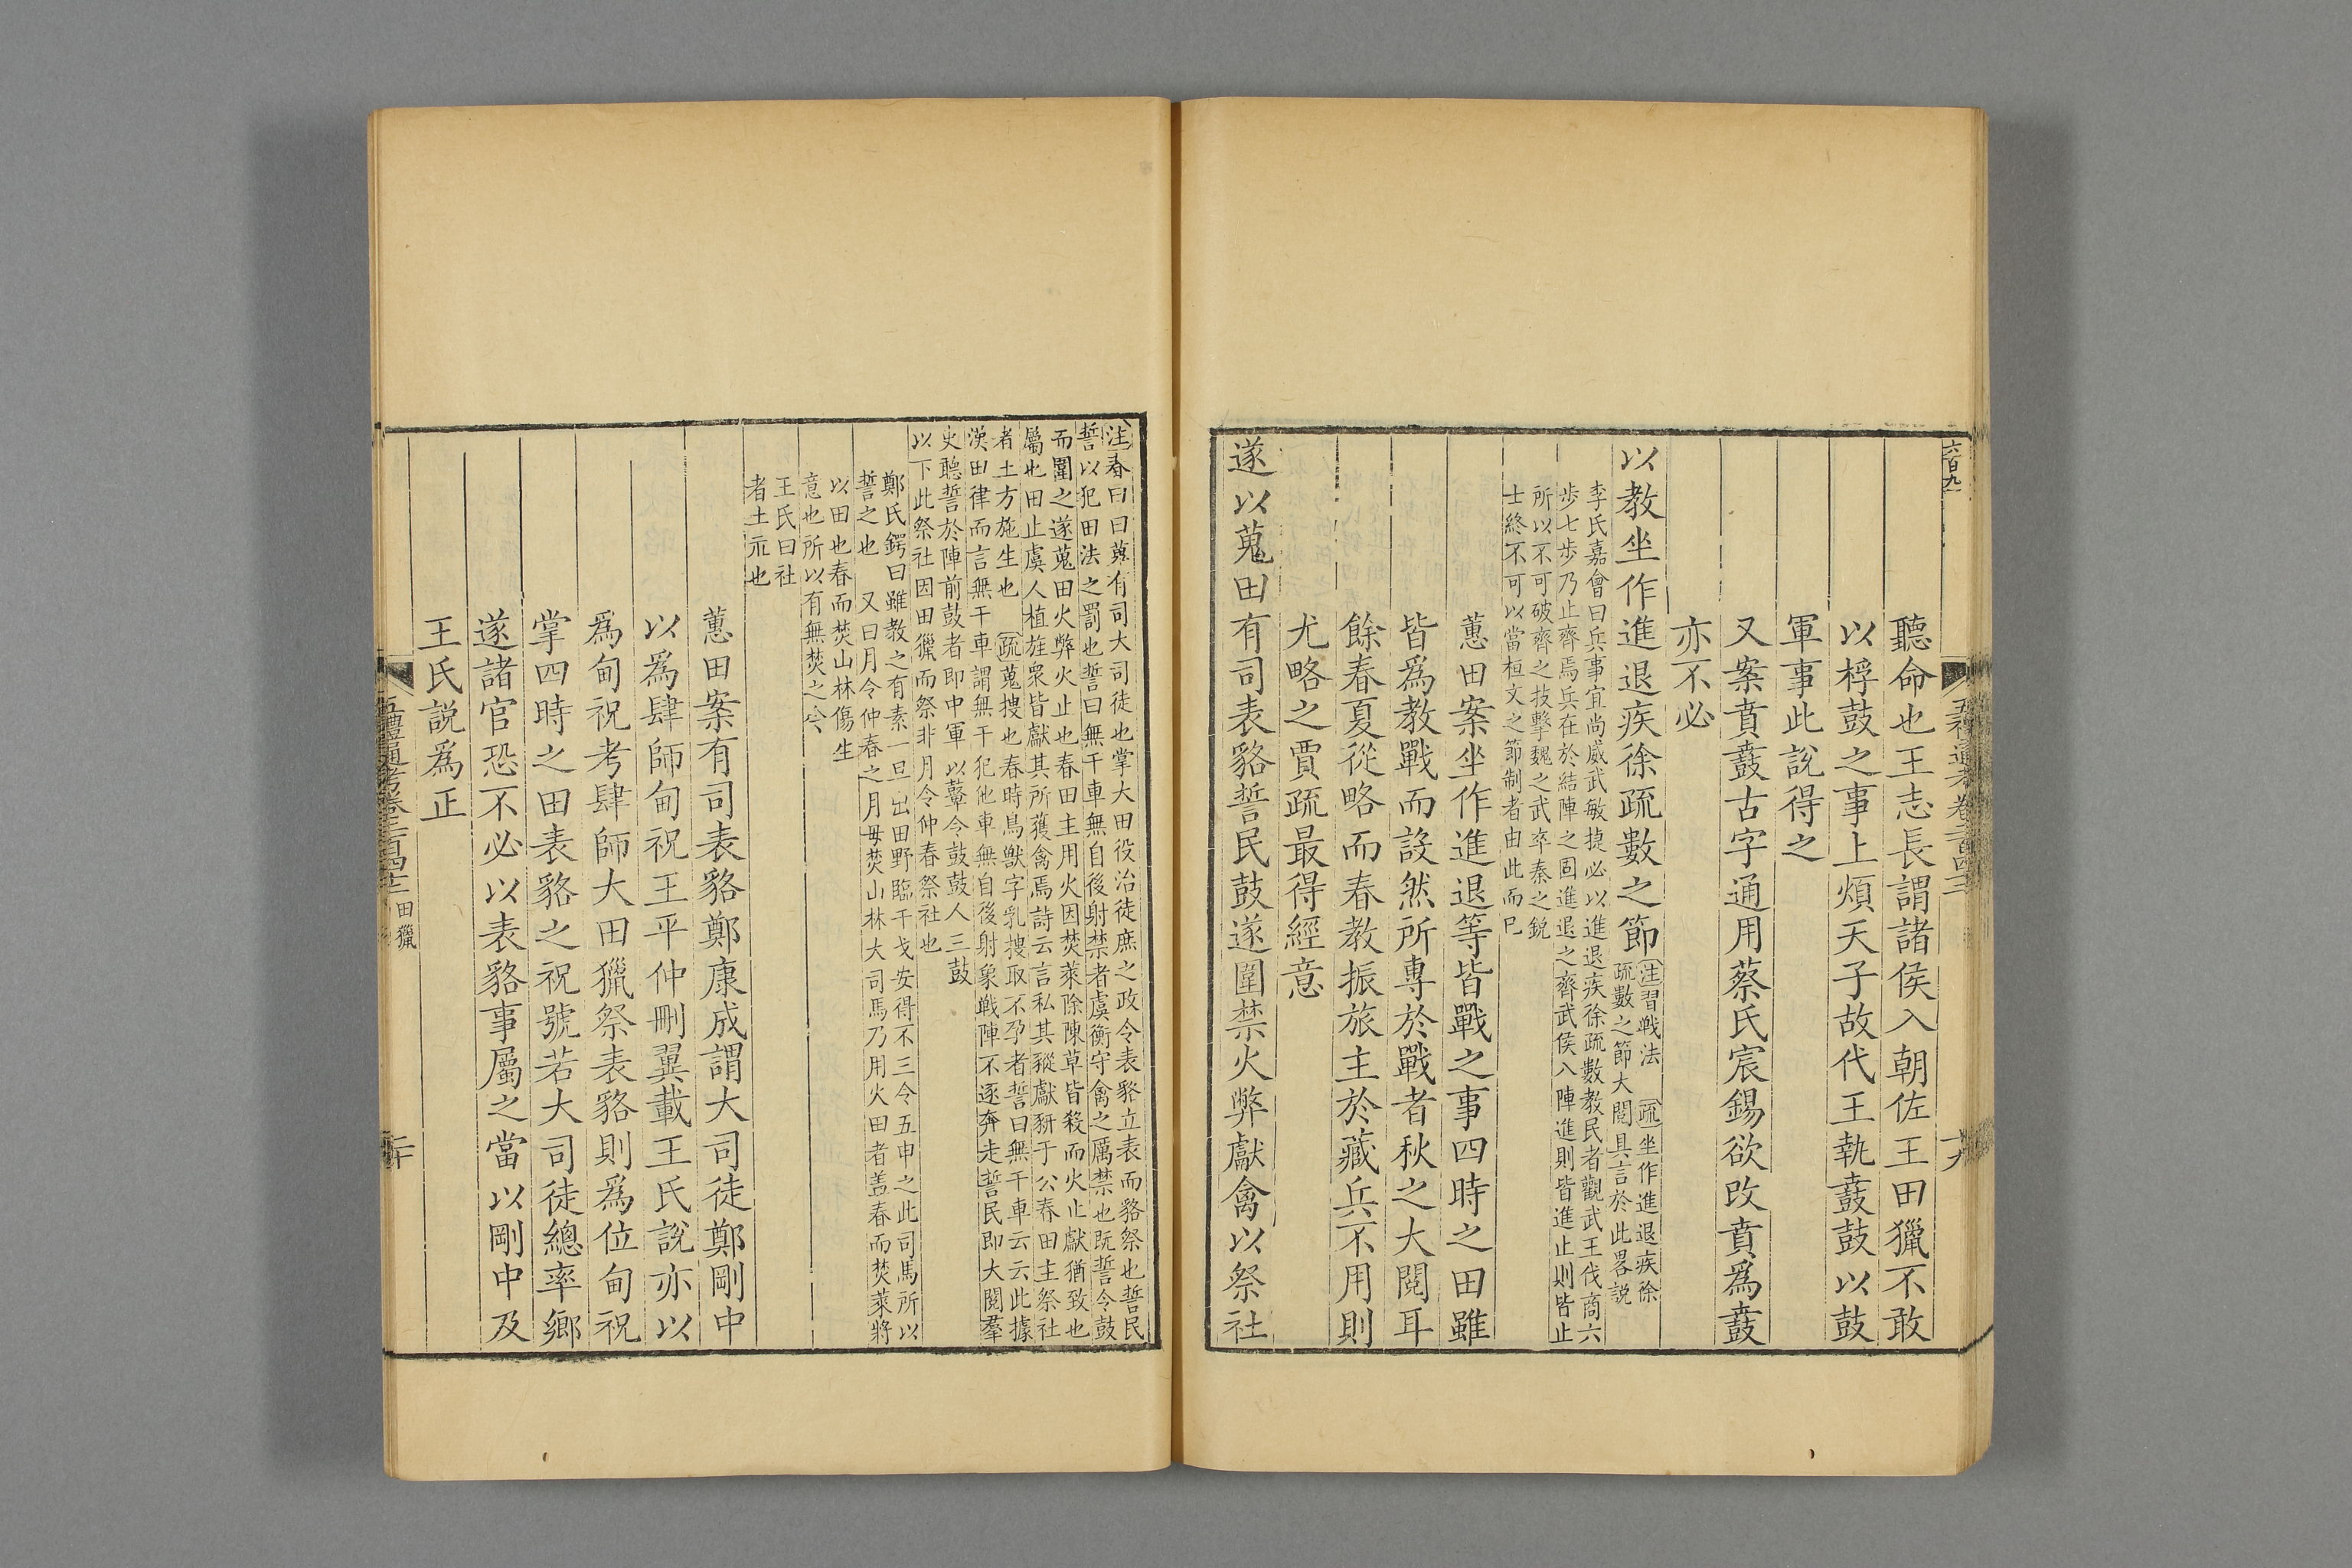 聽命也王志長謂諸侯入朝佐王田獵不敢
以桴鼓之事上煩天子故代王執鼖鼓以鼓
軍事此說得之
又案賁鼖古字通用蔡氏宸錫欲改賁爲鼖
亦不必
以教坐作進退疾徐疏數之節
注習戰法
疏坐作進退疾徐
疏數之節大閱具言於此畧説
李氏嘉會曰兵事宜尚威武敏捷必以進退疾徐疏數教民者觀武王伐商六
步七步乃止齊焉兵在於結陣之固進退之齊武侯入陣進則皆進止則皆止
所以不可破齊之技擊魏之武卒秦之銳
士終不可以當桓文之節制者由此而已
蕙田案坐作進退等皆戰之事四時之田雖
皆爲教戰而設然所專於戰者秋之大閱耳
餘春夏從略而春教振旅主於藏兵不用則
尤略之賈疏最得經意
遂以蒐田有司表貉誓民鼓遂圍禁火弊獻禽以祭社
注春田曰蒐有司大司徒也掌大田役治徒庶之政令表貉立表而貉祭也誓民
誓以犯田法之罰也誓曰無干車無自後射禁者虞衡守禽之厲禁也既誓令鼓
而圍之遂蒐田火弊火止也春田主用火因焚萊除陳草皆殺而火止獻猶致也
屬也田止虞人植旌衆皆獻其所獲禽焉詩云言私其豵獻豜于公春田主祭社
者土方施生也
疏蒐搜也春時鳥獸字乳搜取不孕者誓曰無干車云云此據
漢田律而言無干車謂無干犯他車無自後射象戰陣不逐奔走誓民即大閱羣
吏聽誓於陣前鼓者即中軍以鼙令鼓鼓人三鼓
以下此祭社因田獵而祭非月令仲春祭社也
鄭氏鍔曰雖教之有素一旦出田野臨干戈安得不三令五申之此司馬所以
誓之也
又曰月令仲春之月毋焚山林大司馬乃用火田者盖春而焚萊將
以田也春而焚山林傷生
意也所以有無焚之令
王氏曰社
者土示也
蕙田案有司表貉鄭康成謂大司徒鄭剛中
以爲肆師甸祝王平仲刪翼載王氏說亦以
爲甸祝考肆師大田獵祭表貉則爲位甸祝
掌四時之田表貉之祝號若大司徒總率鄉
遂諸官恐不必以表貉事屬之當以剛中及
王氏説爲正
五禮通考卷二百四十二
田獵
二十